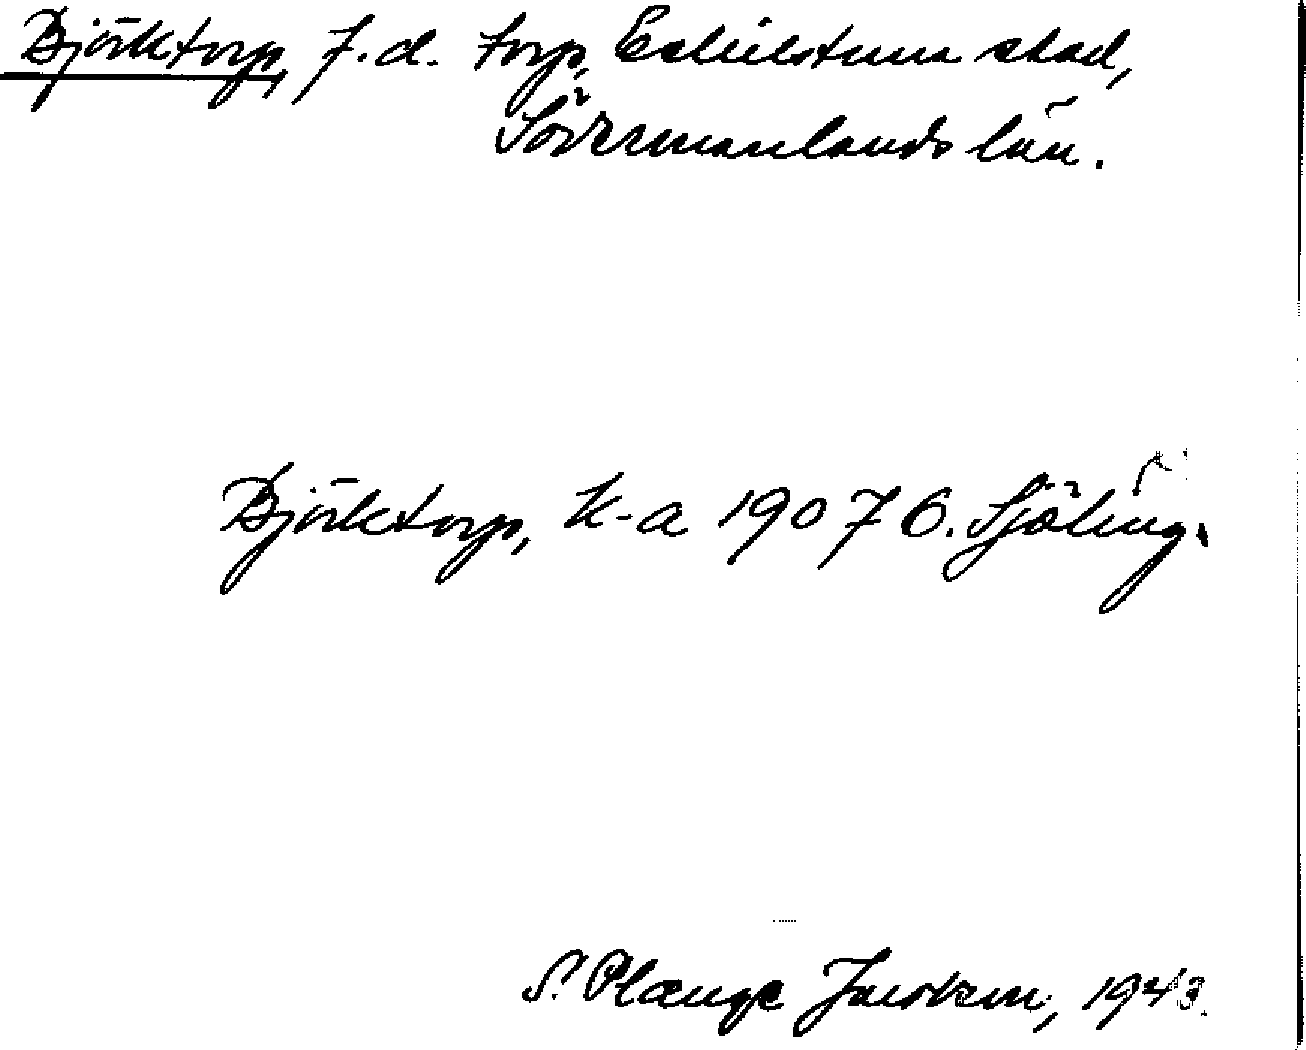 Björktorp, f.d. torp, Eskilstuna stad,
Södermanlands län.
Björktorp, k-a 1907 G. Sjöling.
S. Plange Jacobson, 1943.